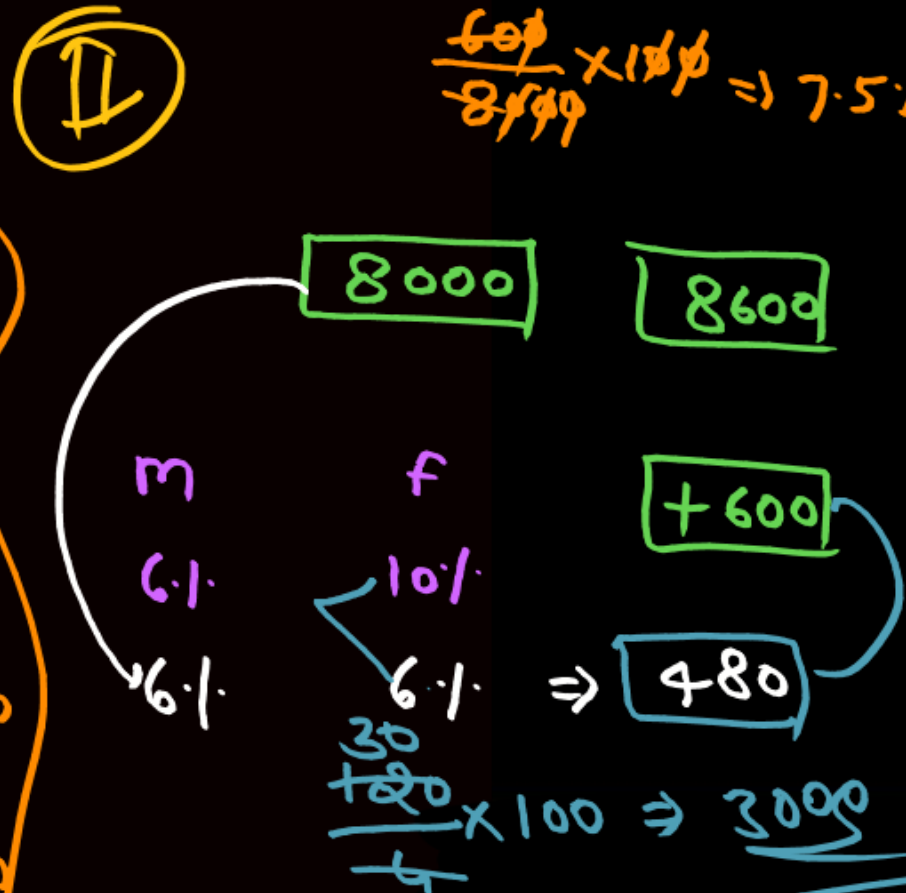 II
600/8000 ×100 ⇒ 7.5%
8000 8600
m f +600
6% 10%
6% 6% ⇒ 480
30
120/4 ×100 ⇒ 3000